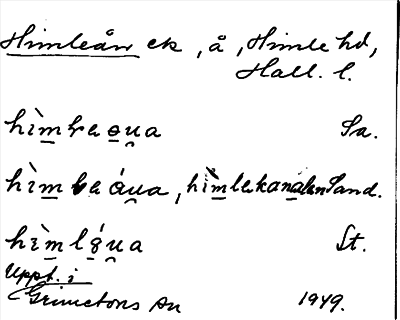 Himleån ek, å, Himle hd,
Hall. l.
hìm̲lea̲u̯a Sa.
hìm̲leáu̯a, hìm̲lekana̲len Sand.
hìm̲lǫ́u̯a St.
Uppt. i
Grimetons sn 1949.